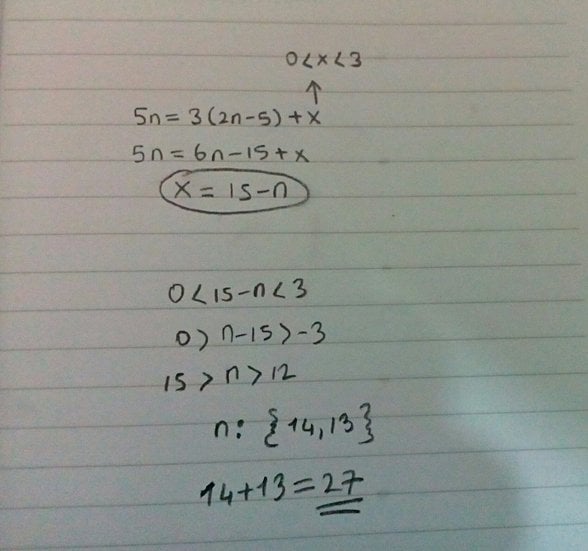 0<x<3
↑
5n=3(2n-5)+x
5n=6n-15+x
x=15-n
0<15-n<3
0>n-15>-3
15>n>12
n: {14,13}
14+13=27